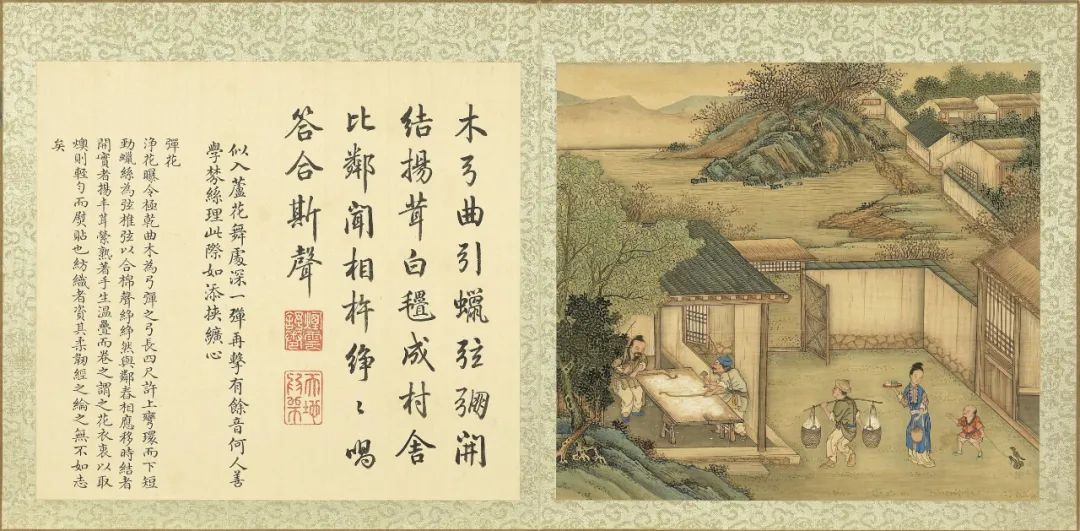 木弓曲引蠟弦弸開
結揚茸白氎成村舍
比鄰聞相杵錚〻喝
答合斯聲
似入蘆花舞處深一彈再擊有餘音何人善
學棼絲理此際如添挾纊心
彈花
淨花曝令極乾曲木為弓彈之弓長四尺許上彎環而下短
勁蠟絲為弦椎弦以合棉聲錚錚然與鄰舂相應移時結者
開實者揚丰茸縈熟著手生溫疊而卷之謂之花衣衷以取
燠則輕勻而熨貼也紡織者資其柔韌經之綸之無不如志
矣